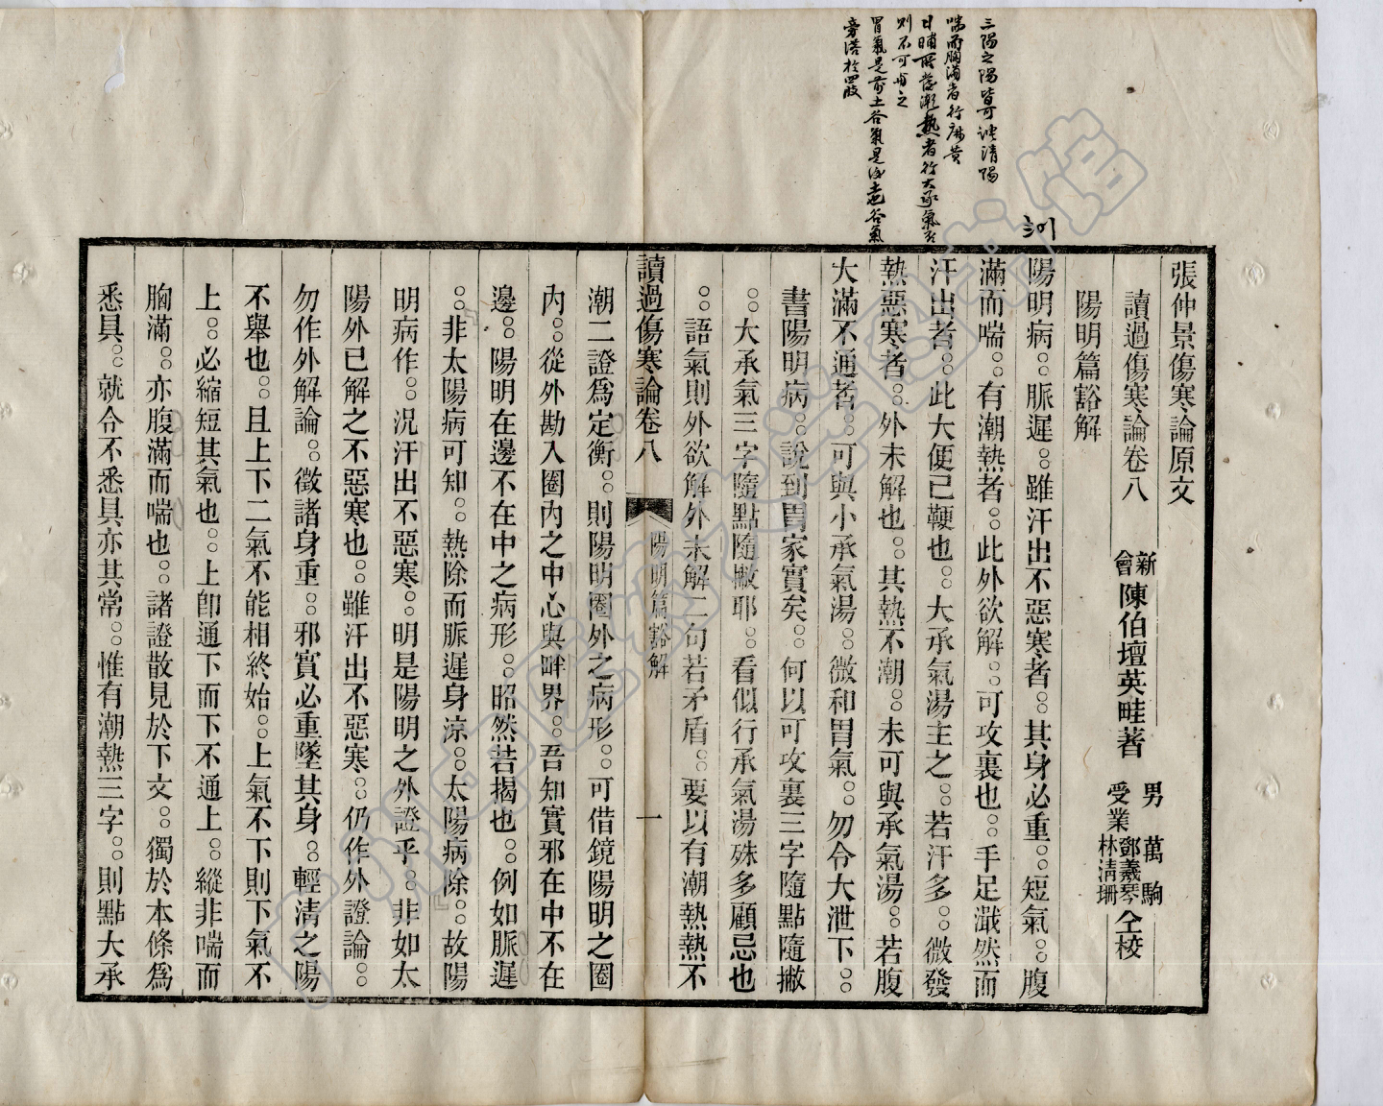 三陽之陽皆可決清陽
喘而胸滿者行麻黃
日晡所發潮熱者行大承氣否
則不可與之
胃氣是前土谷氣是後土也谷氣
旁溢於四肢
張仲景傷寒論原文
讀過傷寒論卷八
新會陳伯壇英畦著
男萬駒
受業鄧羲琴林清珊仝校
陽明篇豁解
陽明病。。脈遲。。雖汗出不惡寒者。。其身必重。。短氣。。腹
滿而喘。。有潮熱者。。此外欲解。。可攻裏也。。手足濈然而
汗出者。。此大便已鞕也。。大承氣湯主之。。若汗多。。微發
熱惡寒者。。外未解也。。其熱不潮。。未可與承氣湯。。若腹
大滿不通者。。可與小承氣湯。。微和胃氣。。勿令大泄下。。
書陽明病。。說到胃家實矣。。何以可攻裏三字隨點隨撇
。。大承氣三字隨點隨撇耶。。看似行承氣湯殊多顧忌也
。。語氣則外欲解外未解二句若矛盾。。要以有潮熱熱不
讀過傷寒論卷八
陽明篇豁解
一
潮二證爲定衡。。則陽明圈外之病形。。可借鏡陽明之圈
內。。從外勘入圈內之中心與畔界。。吾知實邪在中不在
邊。。陽明在邊不在中之病形。。昭然若揭也。。例如脈遲
。。非太陽病可知。。熱除而脈遲身涼。。太陽病除。。故陽
明病作。。況汗出不惡寒。。明是陽明之外證乎。。非如太
陽外已解之不惡寒也。。雖汗出不惡寒。。仍作外證論。。
勿作外解論。。徵諸身重。。邪實必重墜其身。。輕清之陽
不舉也。。且上下二氣不能相終始。。上氣不下則下氣不
上。。必縮短其氣也。。上卽通下而下不通上。。縱非喘而
胸滿。。亦腹滿而喘也。。諸證散見於下文。。獨於本條爲
悉具。。就令不悉具亦其常。。惟有潮熱三字。。則點大承